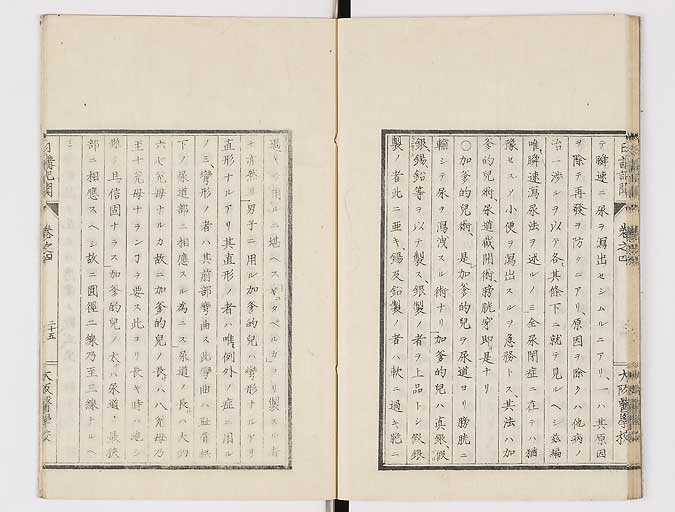 日講記聞
巻之四
大阪醫學校
テ瞬速ニ尿ヲ瀉出セシムルニアリ、一ハ其原因
ヲ除テ再發ヲ防クニアリ、原因ヲ除クハ他病ノ
治ニ渉ルヲ以テ各其條下ニ就テ見ルヘシ此編
唯瞬速瀉尿法ヲ述ルノミ全尿閉症ニ在テハ猶
豫セスノ小便ヲ瀉出スルヲ急務トス、其法ハ加
爹的兒術、尿道截開術、膀胱穿即是ナリ
○加爹的兒術 是加爹的兒ヲ尿道ヨリ膀胱ニ
輸シテ尿ヲ瀉洩スル術ナリ加爹的兒ハ真銀假
銀錫鉛等ヲ以テ製ス、銀製ノ者ヲ上品トシ假銀
製ノ者此ニ亜キ、錫及鉛製ノ者ハ軟ニ過キ脆ニ
過キ用ルニ堪ヘス ヨリ製スル者
亦 然リ男子ニ用ル加爹的兒ハ彎形ナルアリ
直形ナルアリ其直形ノ者ハ唯例外ノ症ニ用ル
ノミ、彎形ノ者ハ其前部彎曲ス此彎曲ハ耻骨縫
下ノ尿道部ニ相應スル為ニス尿道ノ長ハ大約
六七和母ナルカ故ニ加爹的兒ノ長ハ八和母乃
至十和母ナランヿヲ要ス此ヨリ長キ時ハ
且信固ナラス加爹的兒ノ太ハ尿道ノ最狹
部ニ相應スヘシ故ニ圓徑二線乃至三線ナルヘ
日講記聞
巻之四
二十五
大阪醫學校